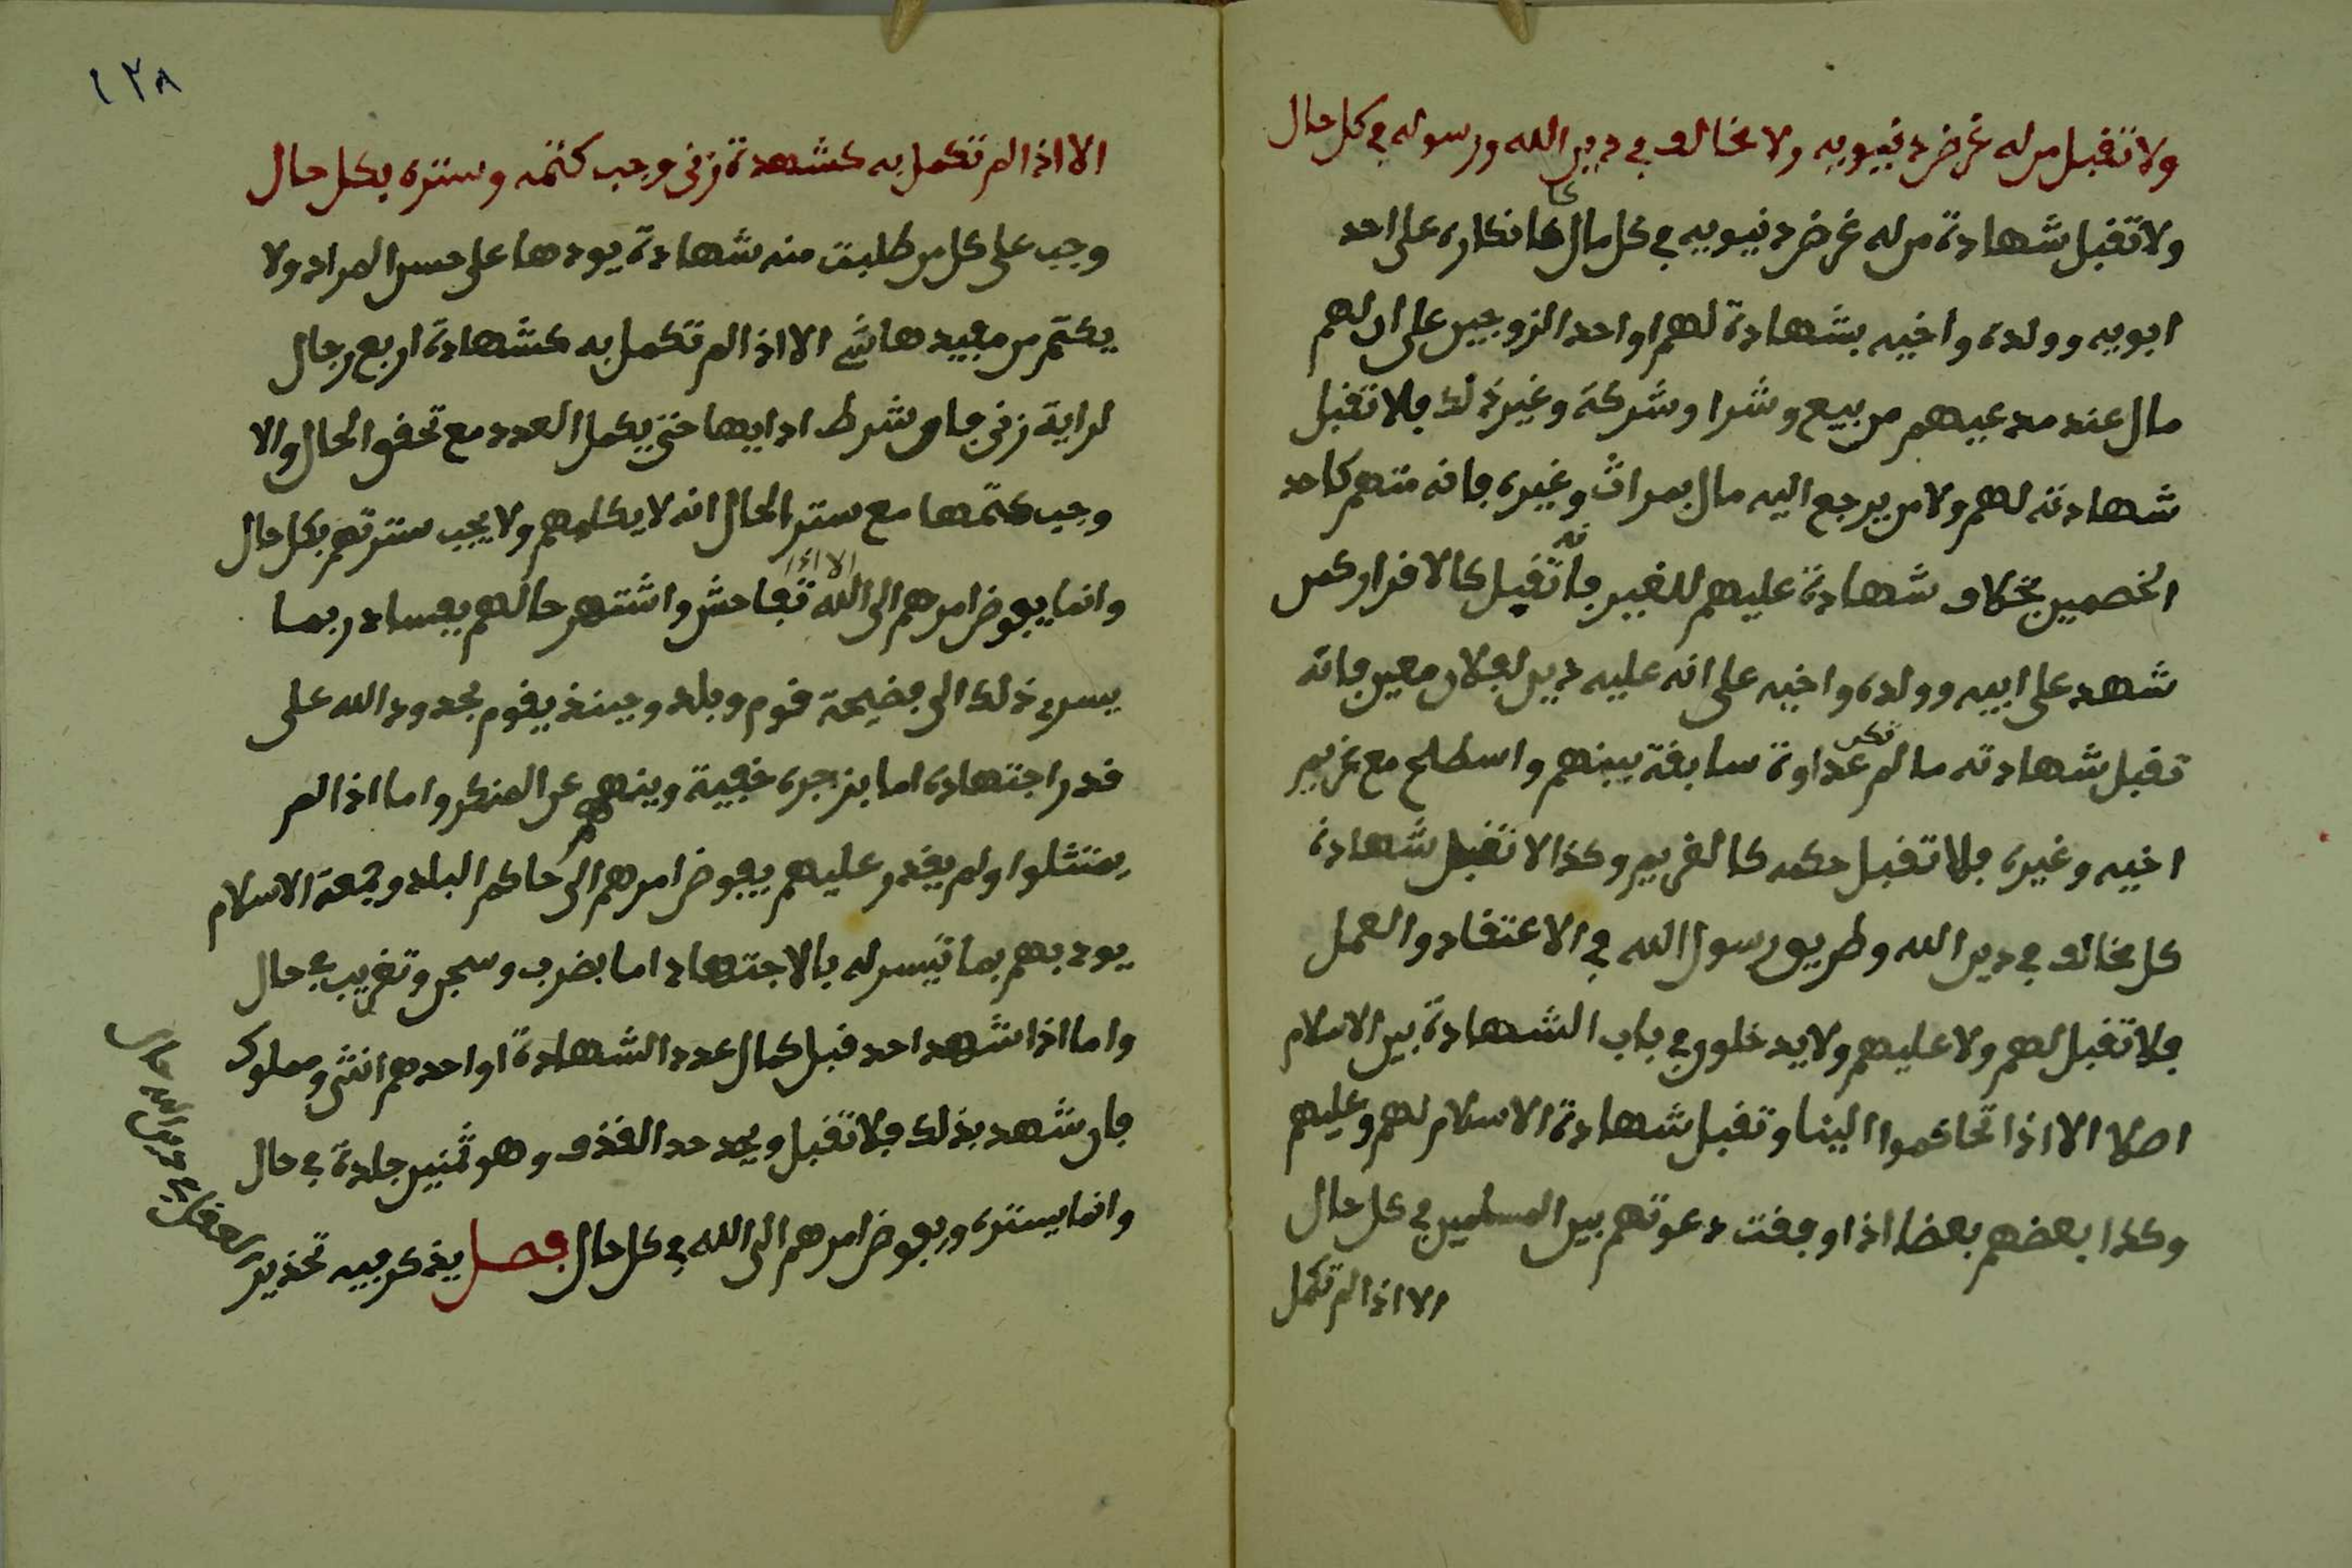 ولا تقبل من له غرض دنيويه ولا مخالف في دين الله ورسوله في كل حال
ولا تقبل شهادة من له غرض دنيويه في كل مال كا كانكاره على احد
ابويه وولده واخيه بشهادة لهم او احد الزوجين على ان لهم
مال عند مدعيهم من بيع وشرا وشركة وغير ذلك فلا تقبل
شهادته لهم ولا من يرجع اليه مال بمراث وغيره فانه متهم كاحد
الخصمين بخلاف شهادة عليهم للغير فانه تقبل كالاقرار كمن
شهد على ابيه وولده واخيه على انه عليه دين لفلان معين فانه
تقبل شهادته ما لم تكن عداوة سابقة بينهم واسطلح مع غريم
اخيه وغيره فلا تقبل حكمه كالغريم وكذا لا تقبل شهادة
كل مخالف في دين الله وطريق رسول الله في الاعتقاد والعمل
فلا تقبل لهم ولا عليهم ولا يدخلون في باب الشهادة بين الاسلام
اصلا الا اذا تحاكموا الينا وتقبل شهادة الاسلام لهم وعليهم
وكذا بعضهم بعضا اذا وقفت دعوتهم بين المسلمين في كل حال
الا اذا لم تكمل
١٢٨
الا اذا لم تكمل به كشهدة زنى وجب كتمه وستره بكل حال
وجب على كل من طلبت منه شهادة يودها على حسن المراد ولا
يكتم من مفيدها شي الا اذا لم تكمل به كشهادة اربع رجال
لراية زنى فان شرط ادايها حتى يكمل العدد مع تحقق الحال والا
وجب كتمها مع ستر الحال انه لا يكلمهم ولا يجب سترتهم بكل حال
وانما يفوض امرهم الى الله الا اذا تفاحش واشتهر حالهم بفساد ربما
يسري ذلك الى فضيحة قوم وبلد وحينئذ يقوم بحدود الله على
قدر اجتهاده اما بزجره خفية وينهيهم عن المنكر واما اذا لم
يمتثلوا ولم يقدر عليهم يفوض امرهم الى حاكم البلد وجمعة الاسلام
يودبهم بما تيسر له بالاجتهاد اما بضرب وسجن وتغريب في حال
واما اذا شهد احد قبل كمال عدد الشهادة او احدهم انثى ومملوك
فان شهد بذلك فلا تقبل ويحد حد القذف وهو ثمنين جلدة في حال
وانما يستره ويفوض امرهم الى الله في كل حال فصل يذكر فيه تحذير